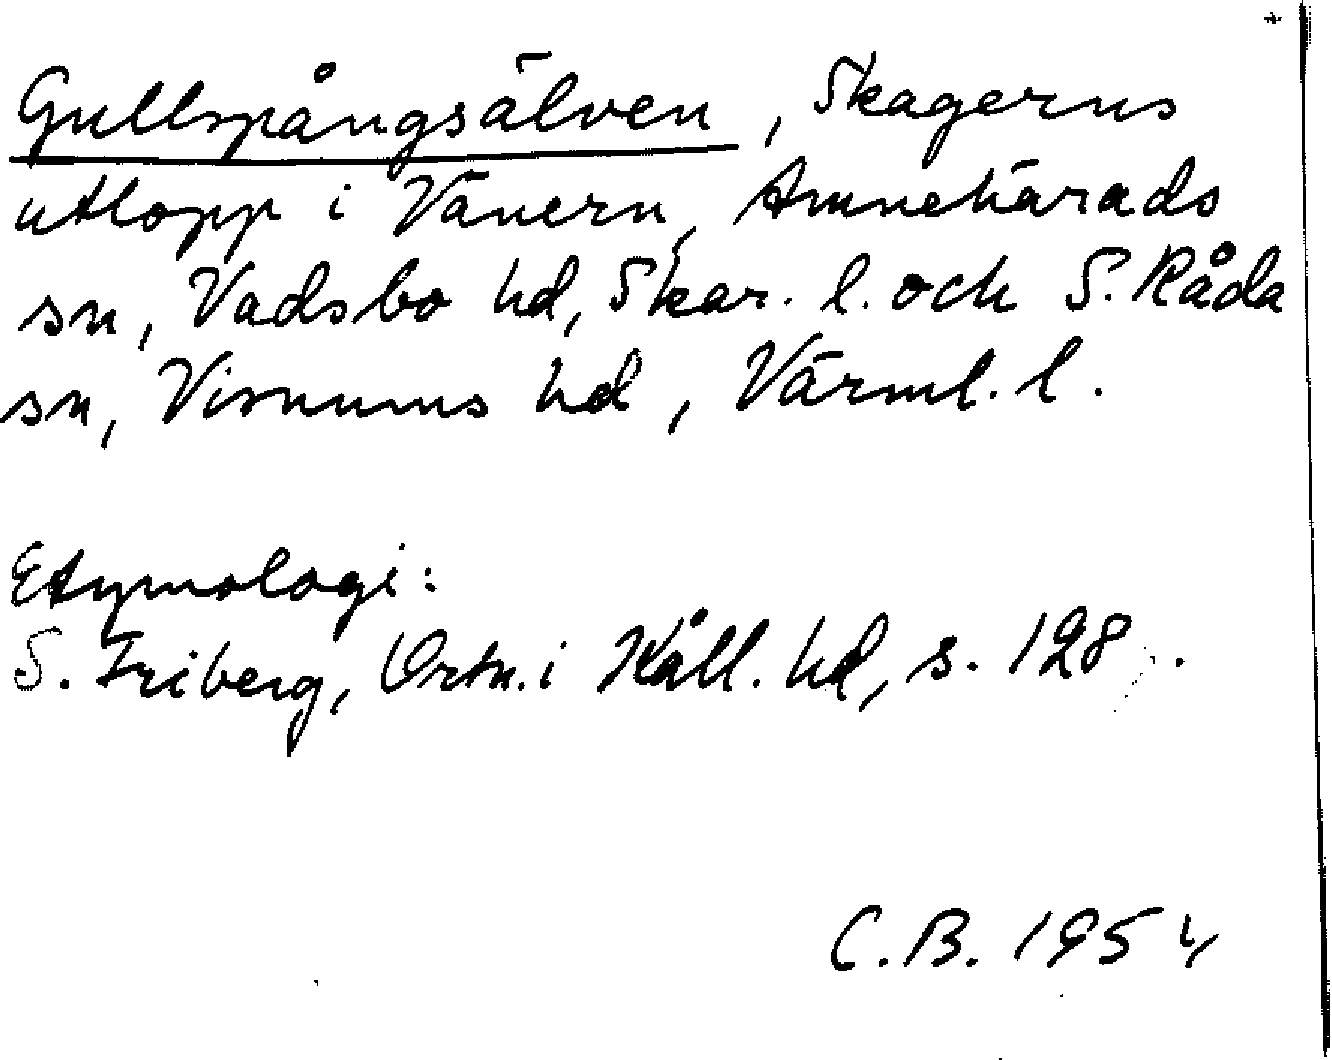 Gullspångsälven, Skagerns
utlopp i Vänern, Amnehärads
sn, Vadsbo hd, Skar. l. och S. Råda
sn, Visnums hd, Värml. l.
Etymologi:
S. Friberg, Ortn. i Kåll. hd, s. 128.
C.B. 1954